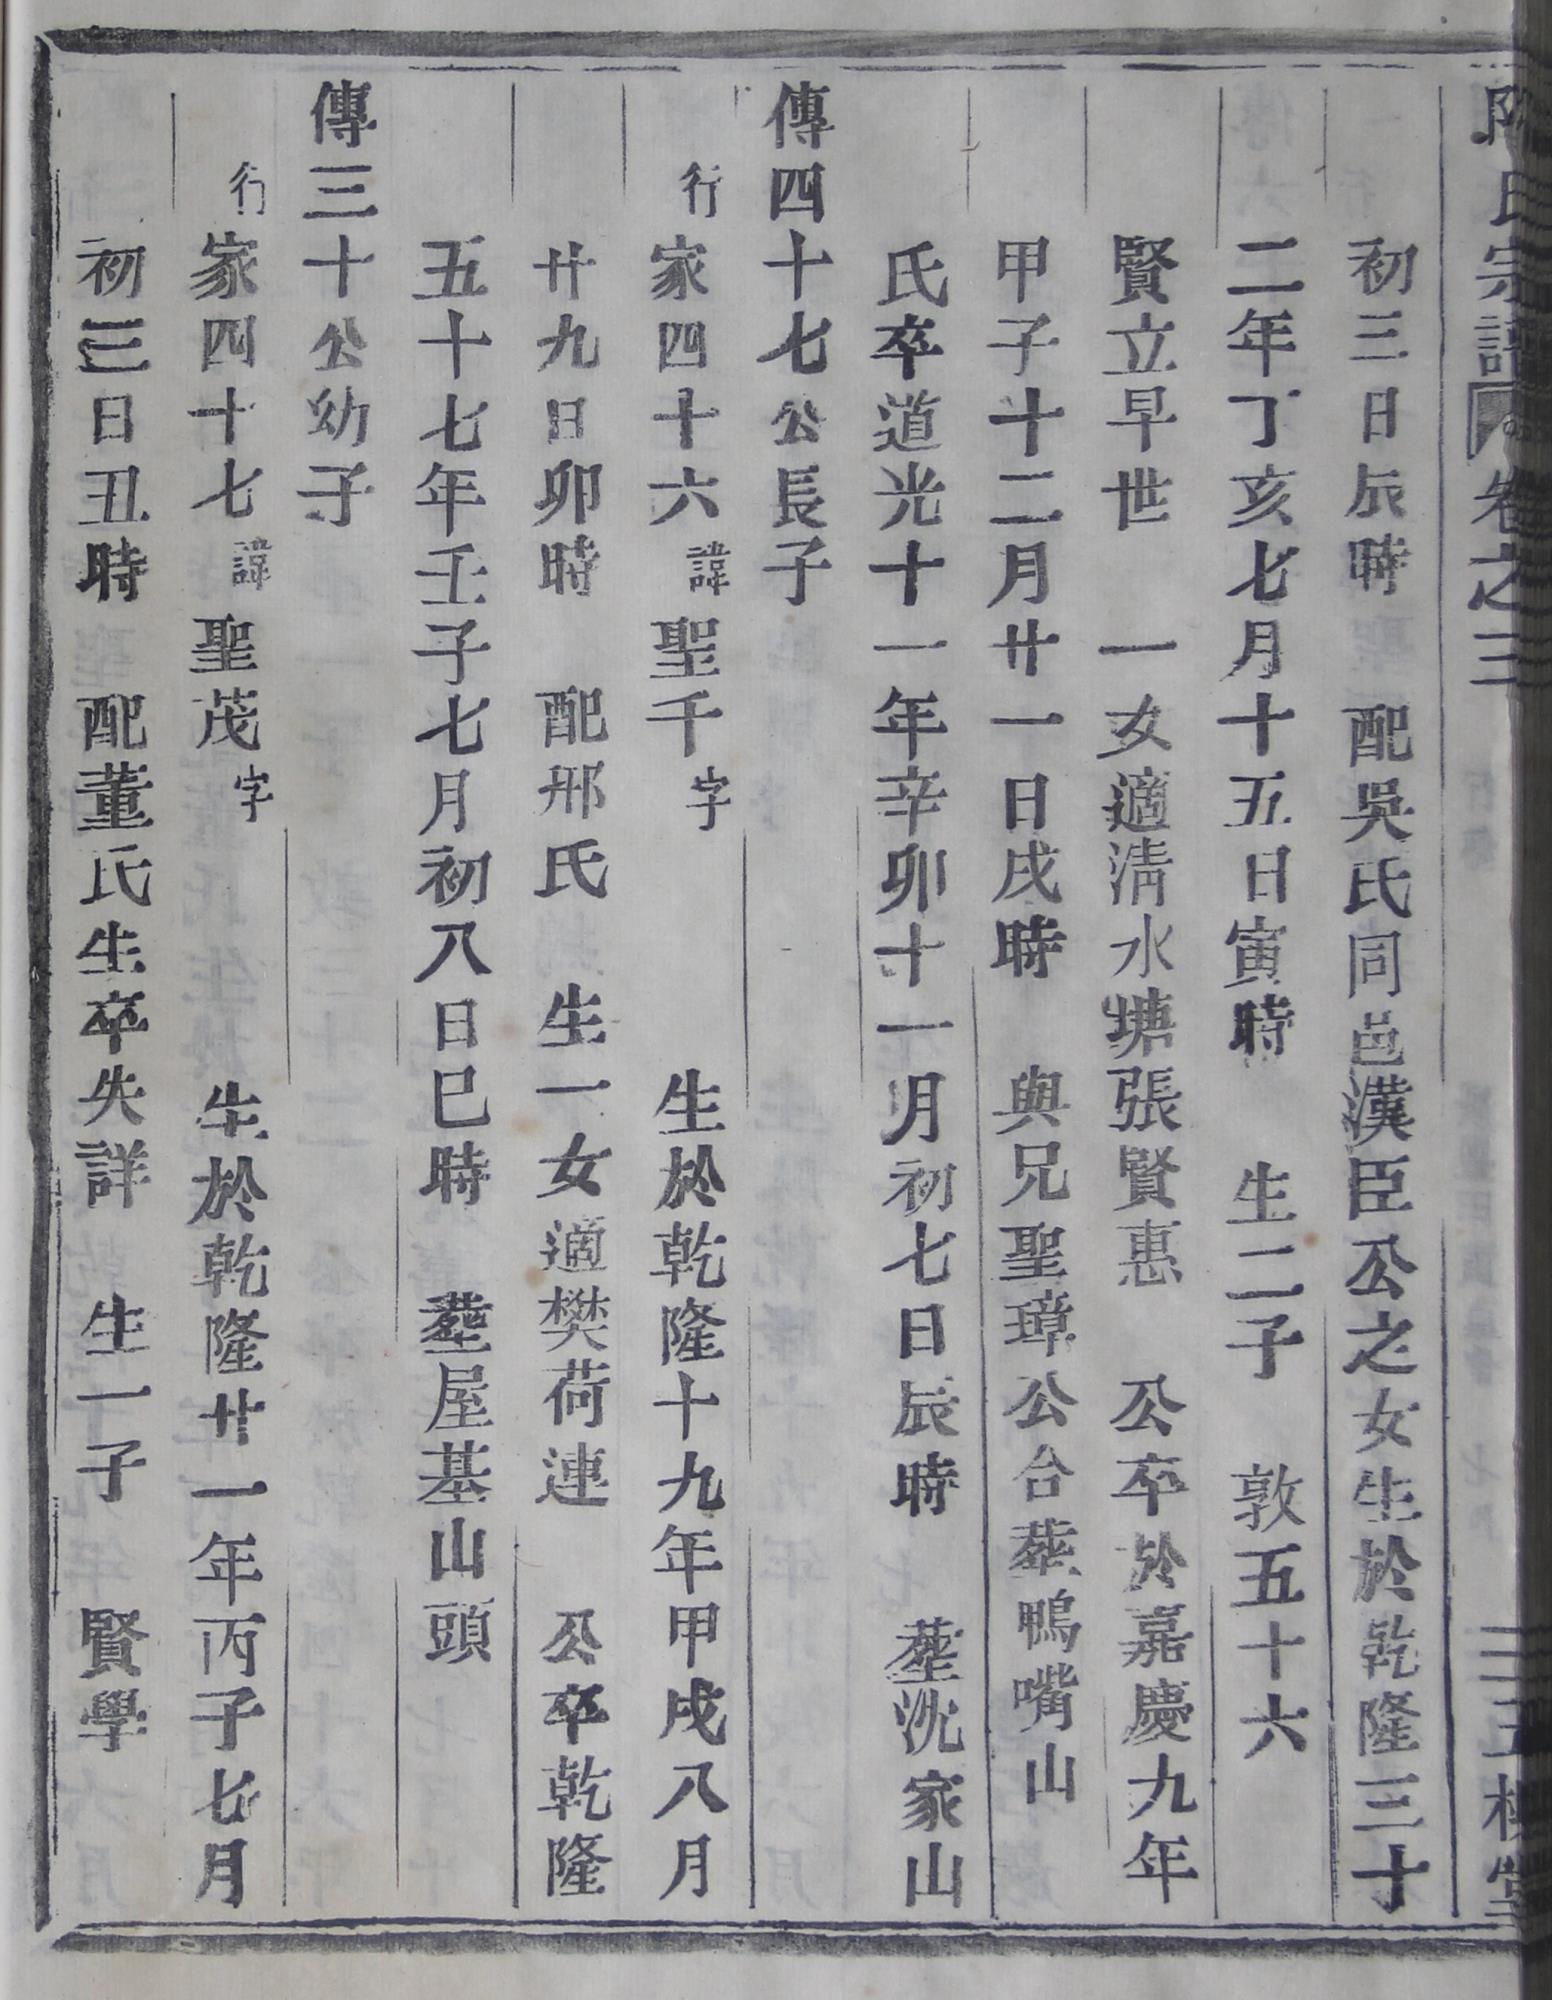 氏宗譜 卷之三
初三日辰時 配吳氏同邑漢臣公之女生於乾隆三十
二年丁亥七月十五日寅時 生二子 敦五十六
賢立早世 一女適淸水塘張賢惠 公卒於嘉慶九年
甲子十二月廿一日戌時 與兄聖璋公合葬鴨嘴山
氏卒道光十一年辛卯十一月初七日辰時 塟沈家山
傳四十七公長子
行家四十六諱聖千字 生於乾隆十九年甲戌八月
廿九日卯時 配邢氏 生一女適樊荷連 公卒乾隆
五十七年壬子七月初八日巳時 塟屋基山頭
傳三十公幼子
行家四十七諱聖茂字 生於乾隆廿一年丙子七月
初三日丑時 配董氏生卒失詳 生一子 賢學